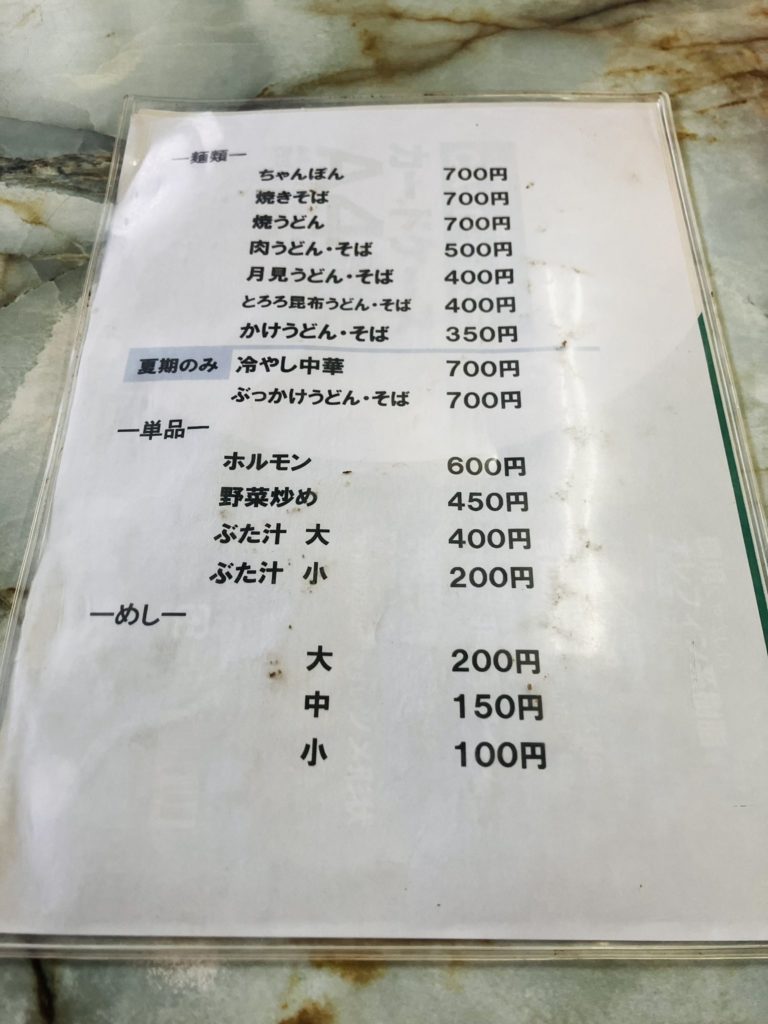 ―麺類―
ちゃんぽん 700円
焼きそば 700円
焼うどん 700円
肉うどん・そば 500円
月見うどん・そば 400円
とろろ昆布うどん・そば 400円
かけうどん・そば 350円
夏期のみ 冷やし中華 700円
ぶっかけうどん・そば 700円
―単品―
ホルモン 600円
野菜炒め 450円
ぶた汁 大 400円
ぶた汁 小 200円
―めし―
大 200円
中 150円
小 100円